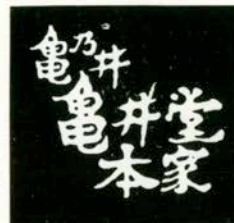 亀乃井
亀井堂
本家